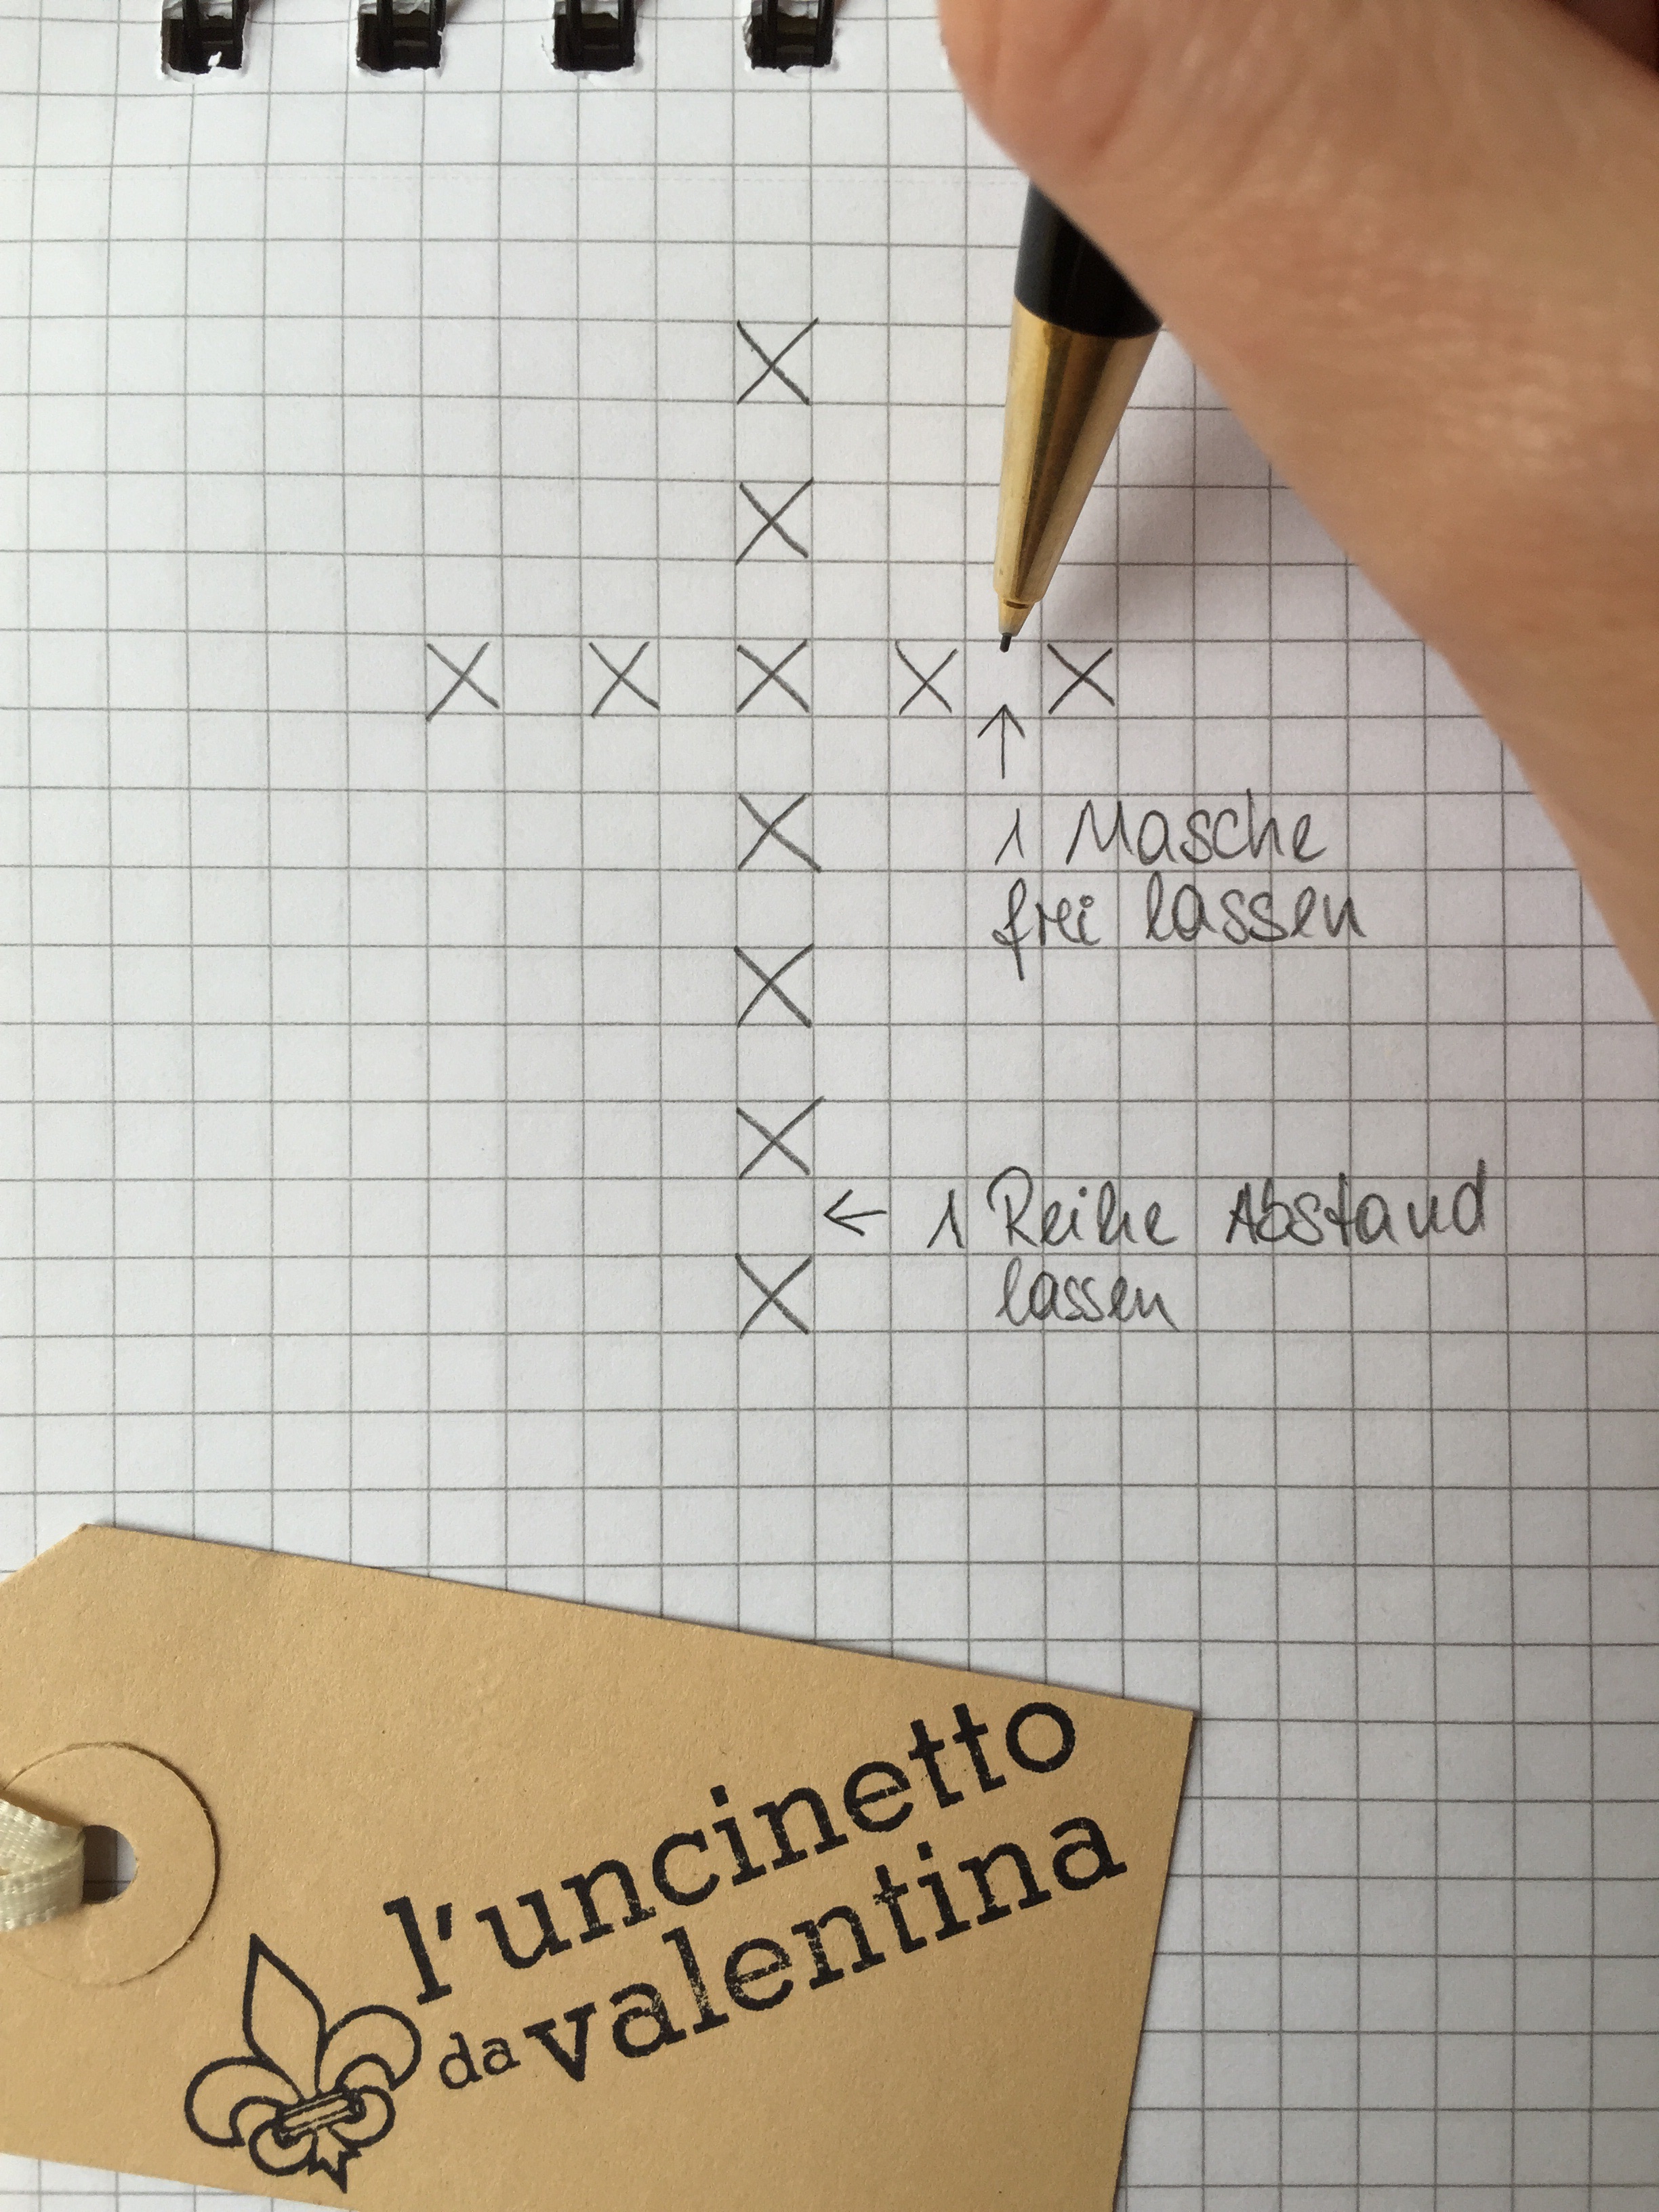 1 Masche
frei lassen
1 Reihe Abstand
lassen
l'uncinetto
da valentina